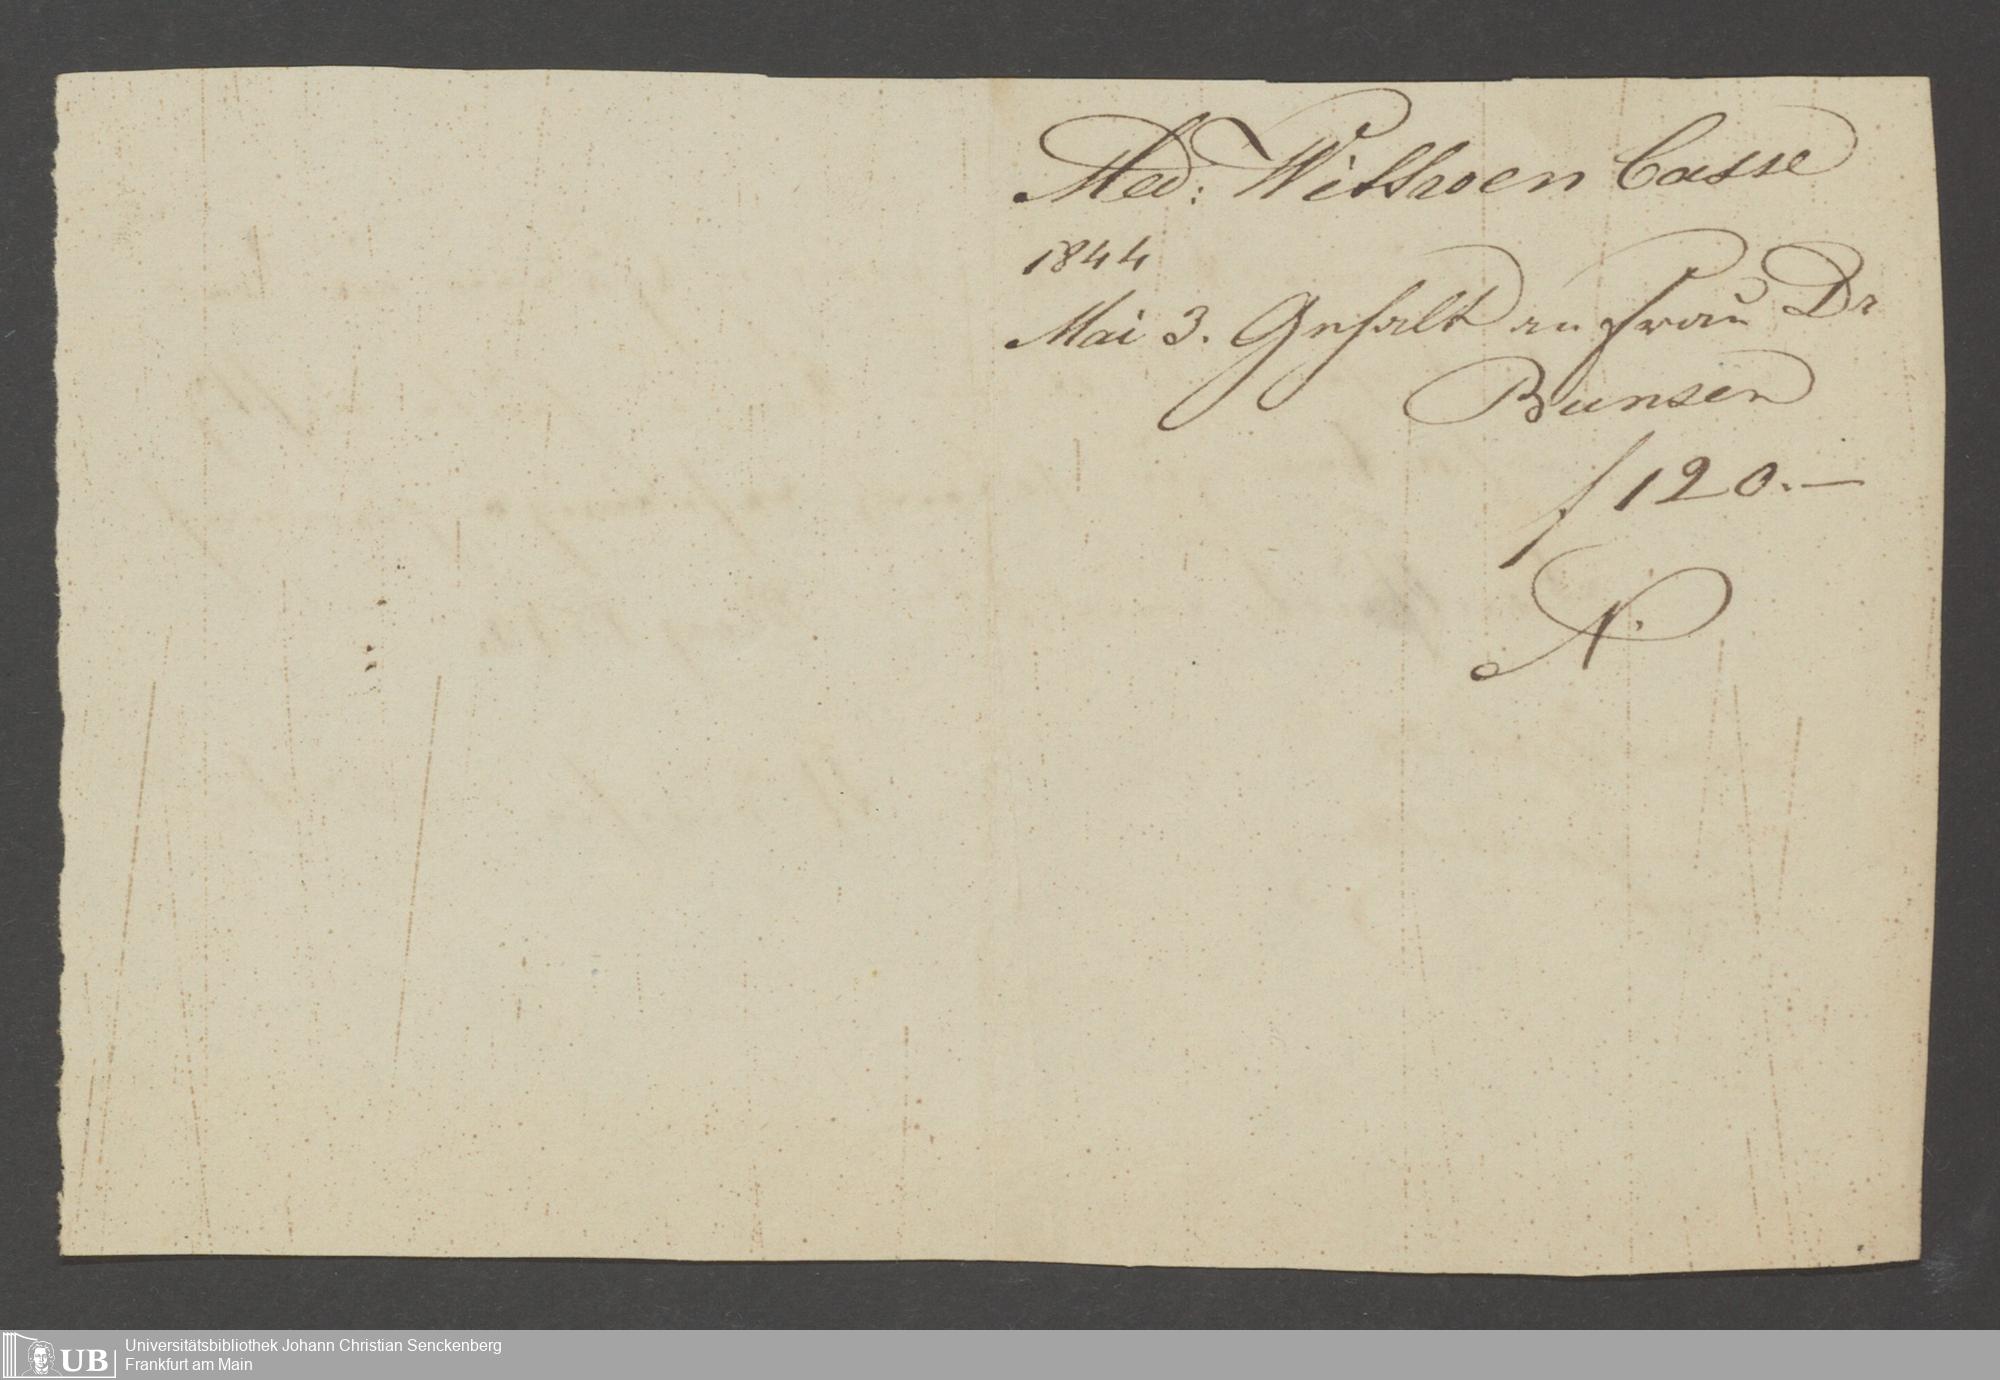 Med: Wittwen Casse
1844
Mai 3. Gehalt an Frau Dr
Bunsen
f 120.—
N.
Universitätsbibliothek Johann Christian Senckenberg
Frankfurt am Main
UB